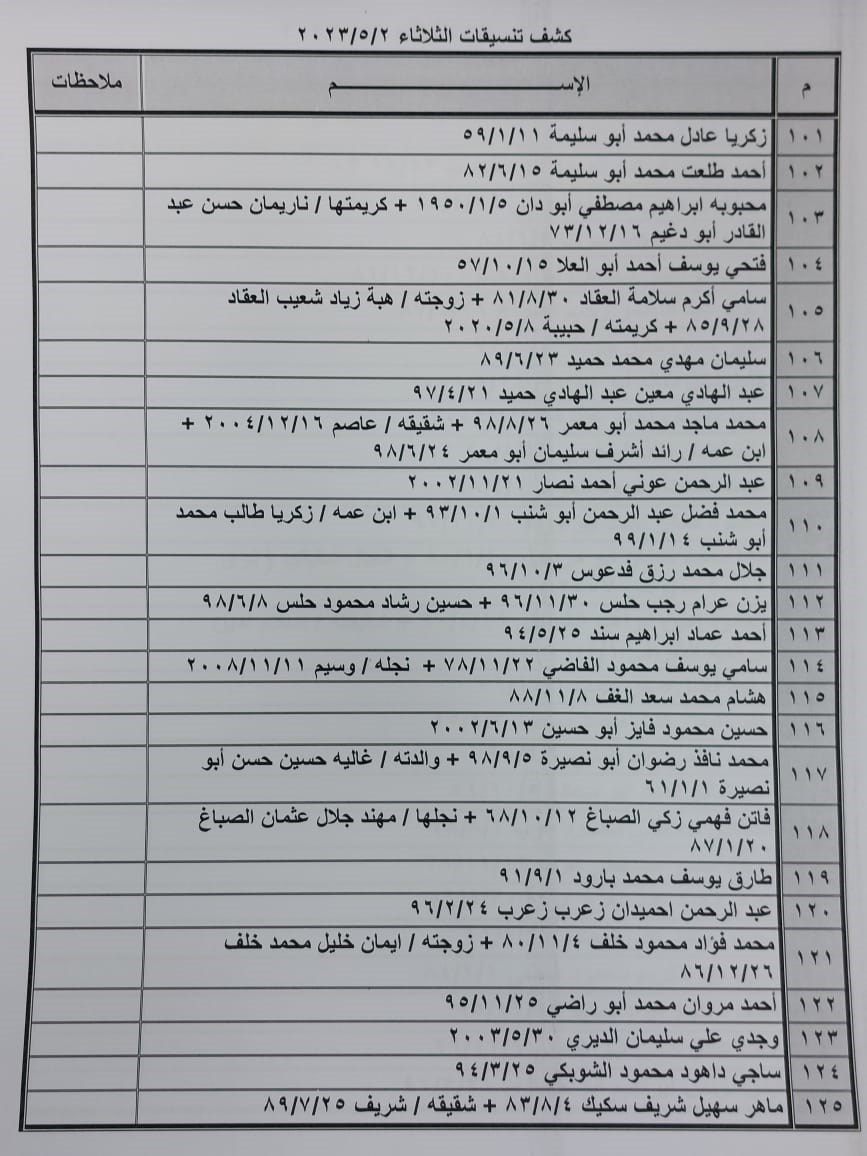 كشف تنسيقات الثلاثاء ٢٠٢٣/٥/٢
م الإســـــــــــــم ملاحظات
١٠١ زكريا عادل محمد أبو سليمة ٥٩/١/١١
١٠٢ أحمد طلعت محمد أبو سليمة ٨٢/٦/١٥
١٠٣ محبوبه ابراهيم مصطفي أبو دان ١٩٥٠/١/٥ + كريمتها / ناريمان حسن عبد
القادر أبو دغيم ٧٣/١٢/١٦
١٠٤ فتحي يوسف أحمد أبو العلا ٥٧/١٠/١٥
١٠٥ سامي أكرم سلامة العقاد ٨١/٨/٣٠ + زوجته / هبة زياد شعيب العقاد
٨٥/٩/٢٨ + كريمته / حبيبة ٢٠٢٠/٥/٨
١٠٦ سليمان مهدي محمد حميد ٨٩/٦/٢٣
١٠٧ عبد الهادي معين عبد الهادي حميد ٩٧/٤/٢١
١٠٨ محمد ماجد محمد أبو معمر ٩٨/٨/٢٦ + شقيقه / عاصم ٢٠٠٤/١٢/١٦ +
ابن عمه / رائد أشرف سليمان أبو معمر ٩٨/٦/٢٤
١٠٩ عبد الرحمن عوني أحمد نصار ٢٠٠٢/١١/٢١
١١٠ محمد فضل عبد الرحمن أبو شنب ٩٣/١٠/١ + ابن عمه / زكريا طالب محمد
أبو شنب ٩٩/١/١٤
١١١ جلال محمد رزق قدعوس ٩٦/١٠/٣
١١٢ يزن عرام رجب حلس ٩٦/١١/٣٠ + حسين رشاد محمود حلس ٩٨/٦/٨
١١٣ أحمد عماد ابراهيم سند ٩٤/٥/٢٥
١١٤ سامي يوسف محمود القاضي ٧٨/١١/٢٢ + نجله / وسيم ٢٠٠٨/١١/١١
١١٥ هشام محمد سعد الغف ٨٨/١١/٨
١١٦ حسين محمود فايز أبو حسين ٢٠٠٢/٦/١٣
١١٧ محمد نافذ رضوان أبو نصيرة ٩٨/٩/٥ + والدته / غاليه حسين حسن أبو
نصيرة ٦١/١/١
١١٨ فاتن فهمي زكي الصباغ ٦٨/١٠/١٢ + نجلها / مهند جلال عثمان الصباغ
٨٧/١/٢٠
١١٩ طارق يوسف محمد بارود ٩١/٩/١
١٢٠ عبد الرحمن احميدان زعرب زعرب ٩٦/٢/٢٤
١٢١ محمد فؤاد محمود خلف ٨٠/١١/٤ + زوجته / ايمان خليل محمد خلف
٨٦/١٢/٢٦
١٢٢ أحمد مروان محمد أبو راضي ٩٥/١١/٢٥
١٢٣ وجدي علي سليمان الديري ٢٠٠٣/٥/٣٠
١٢٤ ساجي داهود محمود الشوبكي ٩٤/٣/٢٥
١٢٥ ماهر سهيل شريف سكيك ٨٣/٨/٤ + شقيقه / شريف ٨٩/٧/٢٥